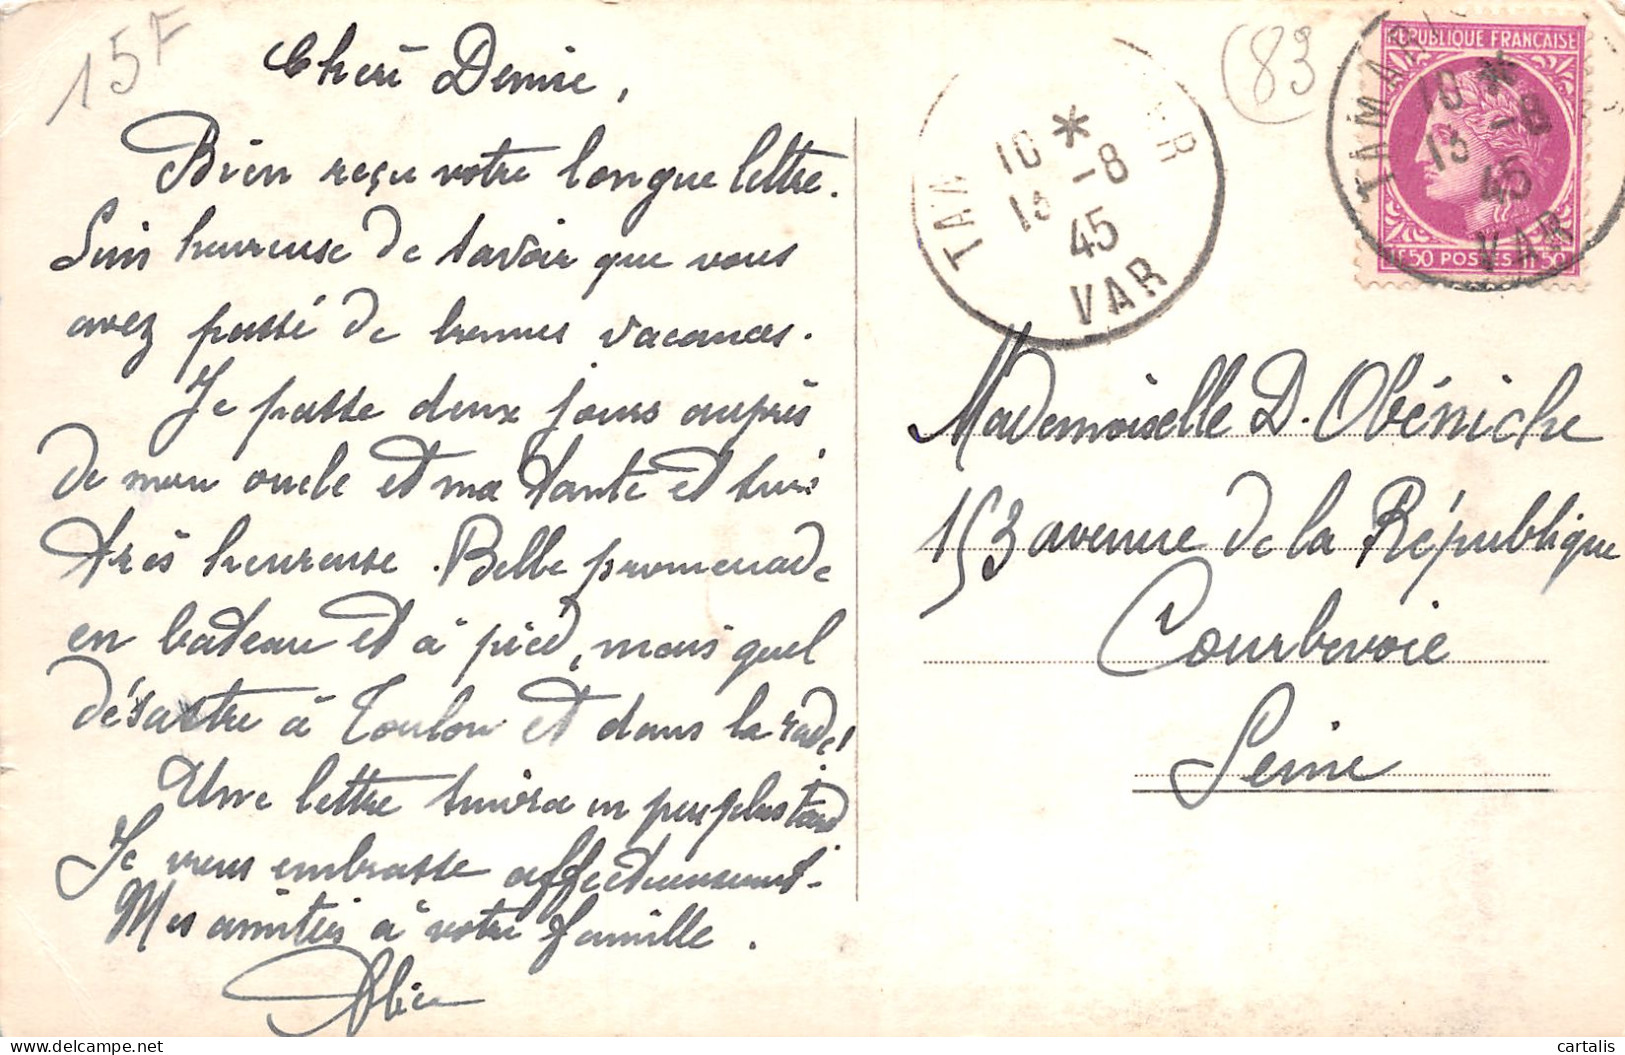 15F
Chère Denise,
Bien reçu votre longue lettre.
Suis heureuse de savoir que vous
avez passé de bonnes vacances.
Je passe deux jours auprès
de mon oncle et ma tante et suis
très heureuse. Belle promenade
en bateau et à pied, mais quel
désastre à Toulon et dans la rade!
Une lettre suivra un peu plus tard
Je vous embrasse affectueusement.
Mes amitiés à votre famille.
(83)
TAM
10 *
13 -8
45
VAR
TAMARIS
10 *
13 -8
45
VAR
REPUBLIQUE FRANÇAISE
1F50 POSTES 1F50
Mademoiselle D. Obéniche
153 avenue de la République
Courbevoie
Seine
cartalis
delcampe.net